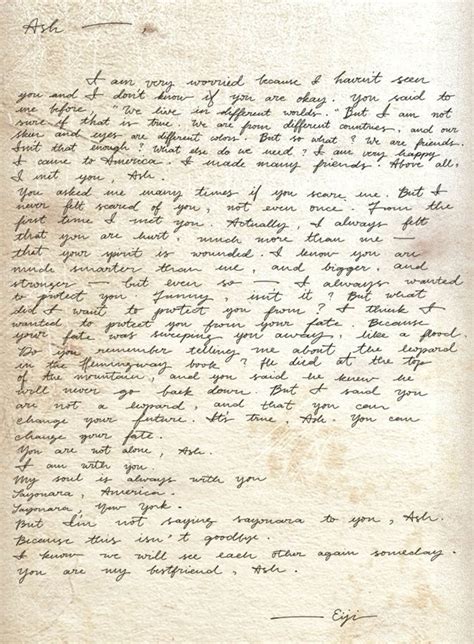 Ash ——,
I am very worried because I haven't seen
you and I don't know if you are okay. You said to
me before, "We live in different worlds." But I am not
sure if that is true. We are from different countries, and our
skin and eyes are different colors. But so what? We are friends.
Isnit that enough? What else do we need? I am very happy
I came to America. I made many friends. Above all,
I met you, Ash.
You asked me many times if you scare me. But I
never felt scared of you, not even once. From the
first time I met you. Actually, I always felt
that you are hurt, much more than me —
that your spirit is wounded. I know you are
much smarter than me, and bigger, and
stronger — but even so — I always wanted
to protect you. Funny, isn't it? But what
did I want to protect you from? I think I
wanted to protect you from your fate. Because
your fate was sweeping you away, like a flood
Do you remember telling me about the leopard
in the Hemingway book? He died at the top
of the mountain, and you said he knew he
will never go back down. But I said you
are not a leopard, and that you can
change your future. It's true, Ash. You can
change your fate.
You are not alone, Ash.
I am with you.
My soul is always with you
Sayonara, America.
Sayonara, New York.
But I'm not saying sayonara to you, Ash.
Because this isn't goodbye.
I know we will see each other again someday.
You are my bestfriend, Ash.
— Eiji